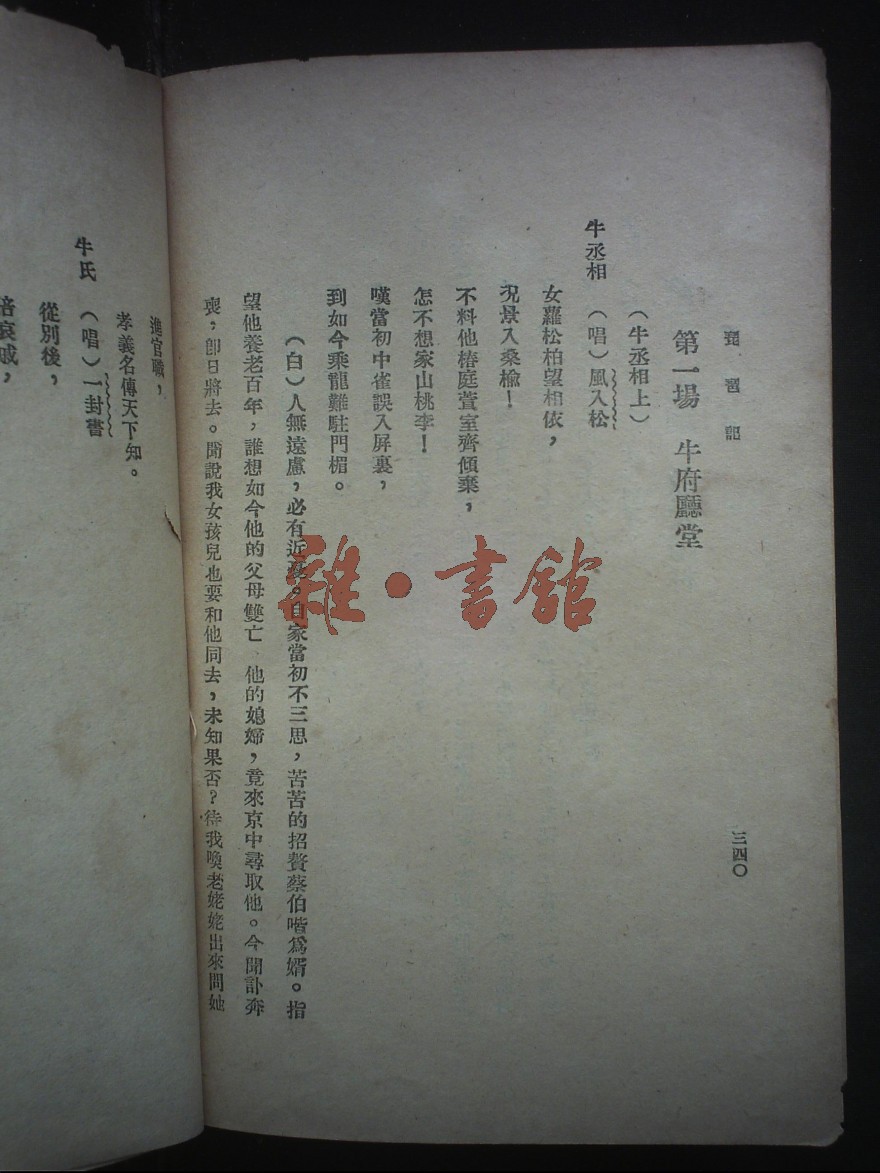 琵琶記
三四〇
第一場　牛府廳堂
（牛丞相上）
牛丞相　（唱）風入松
女蘿松柏望相依，
況景入桑楡！
不料他椿庭萱室齊傾棄，
怎不想家山桃李！
嘆當初中雀誤入屏裏，
到如今乘龍難駐門楣。
（白）人無遠慮，必有近憂。自家當初不三思，苦苦的招贅蔡伯喈爲婿。指
望他養老百年，誰想如今他的父母雙亡、他的媳婦，竟來京中尋取他。今聞訃奔
喪，卽日將去。聞說我女孩兒也要和他同去，未知果否？待我喚老姥姥出來問她
進官職，
孝義名傳天下知。
牛氏　（唱）一封書
從別後，
雜·書館